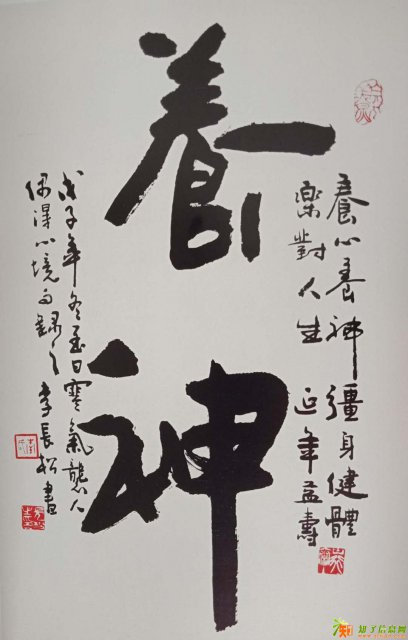 養心養神彊身健體
樂對人生 延年益壽
養神
戊子年冬至日寒氣襲人
偶得心境而錄之 李長松書
知了信息网